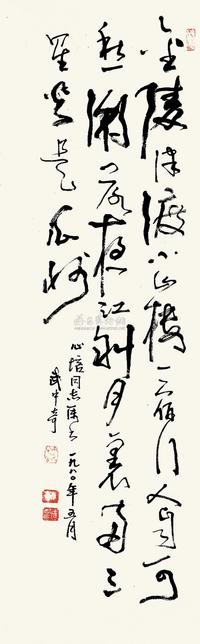 金陵津渡小山樓一宿行人自可
愁潮落夜江斜月裏兩三
星火是瓜洲
心培同志属 一九八〇年五月
武中奇